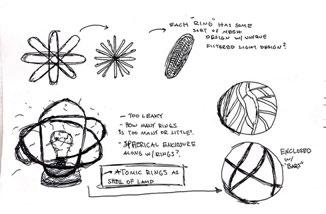 EACH "RING" HAS SOME
SORT OF MESH
DESIGN W/ UNIQUE
FILTERED LIGHT DESIGN?
- TOO LEAKY
- HOW MANY RINGS
IS TOO MANY OR LITTLE?
- SPHERICAL ENCLOSURE
ALONG W/ RINGS?
→ ATOMIC RINGS AS
SHELL OF LAMP
ENCLOSED
W/
"BARS"